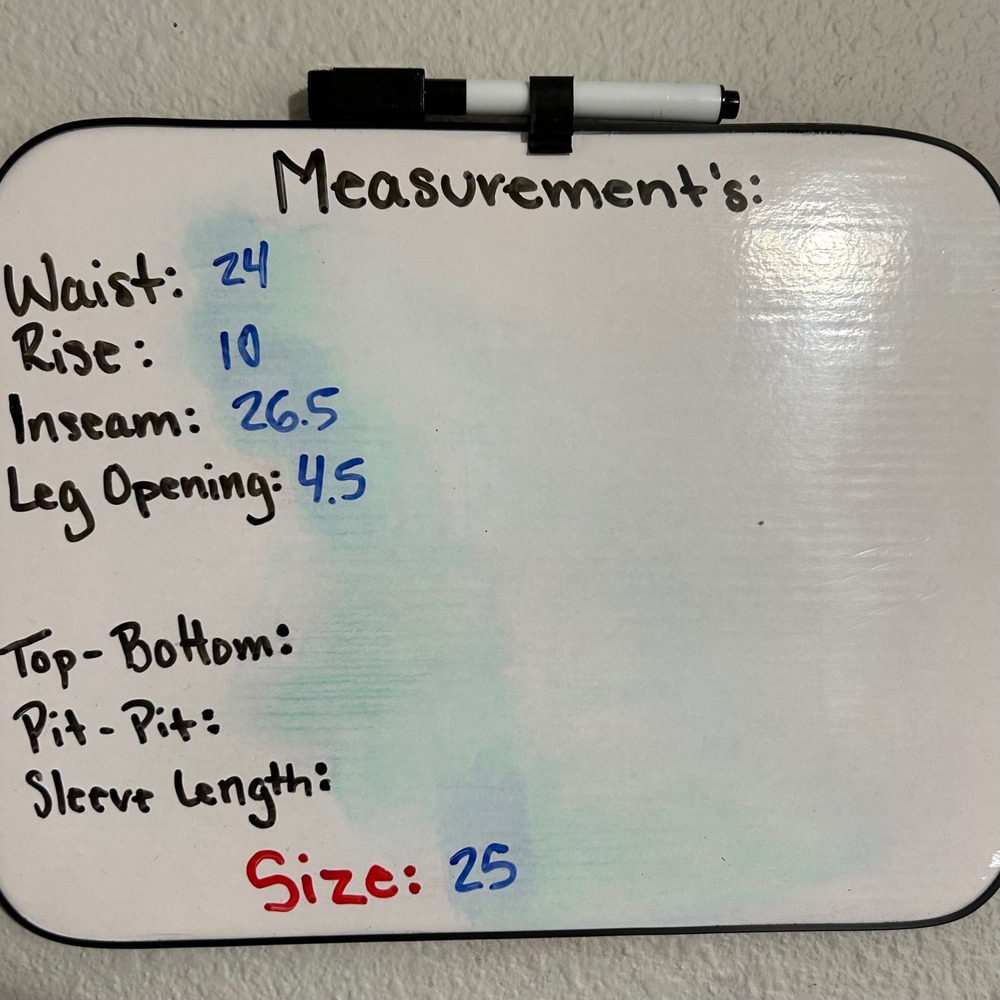 Measurement's:
Waist: 24
Rise: 10
Inseam: 26.5
Leg Opening: 4.5
Top-Bottom:
Pit-Pit:
Sleeve Length:
Size: 25